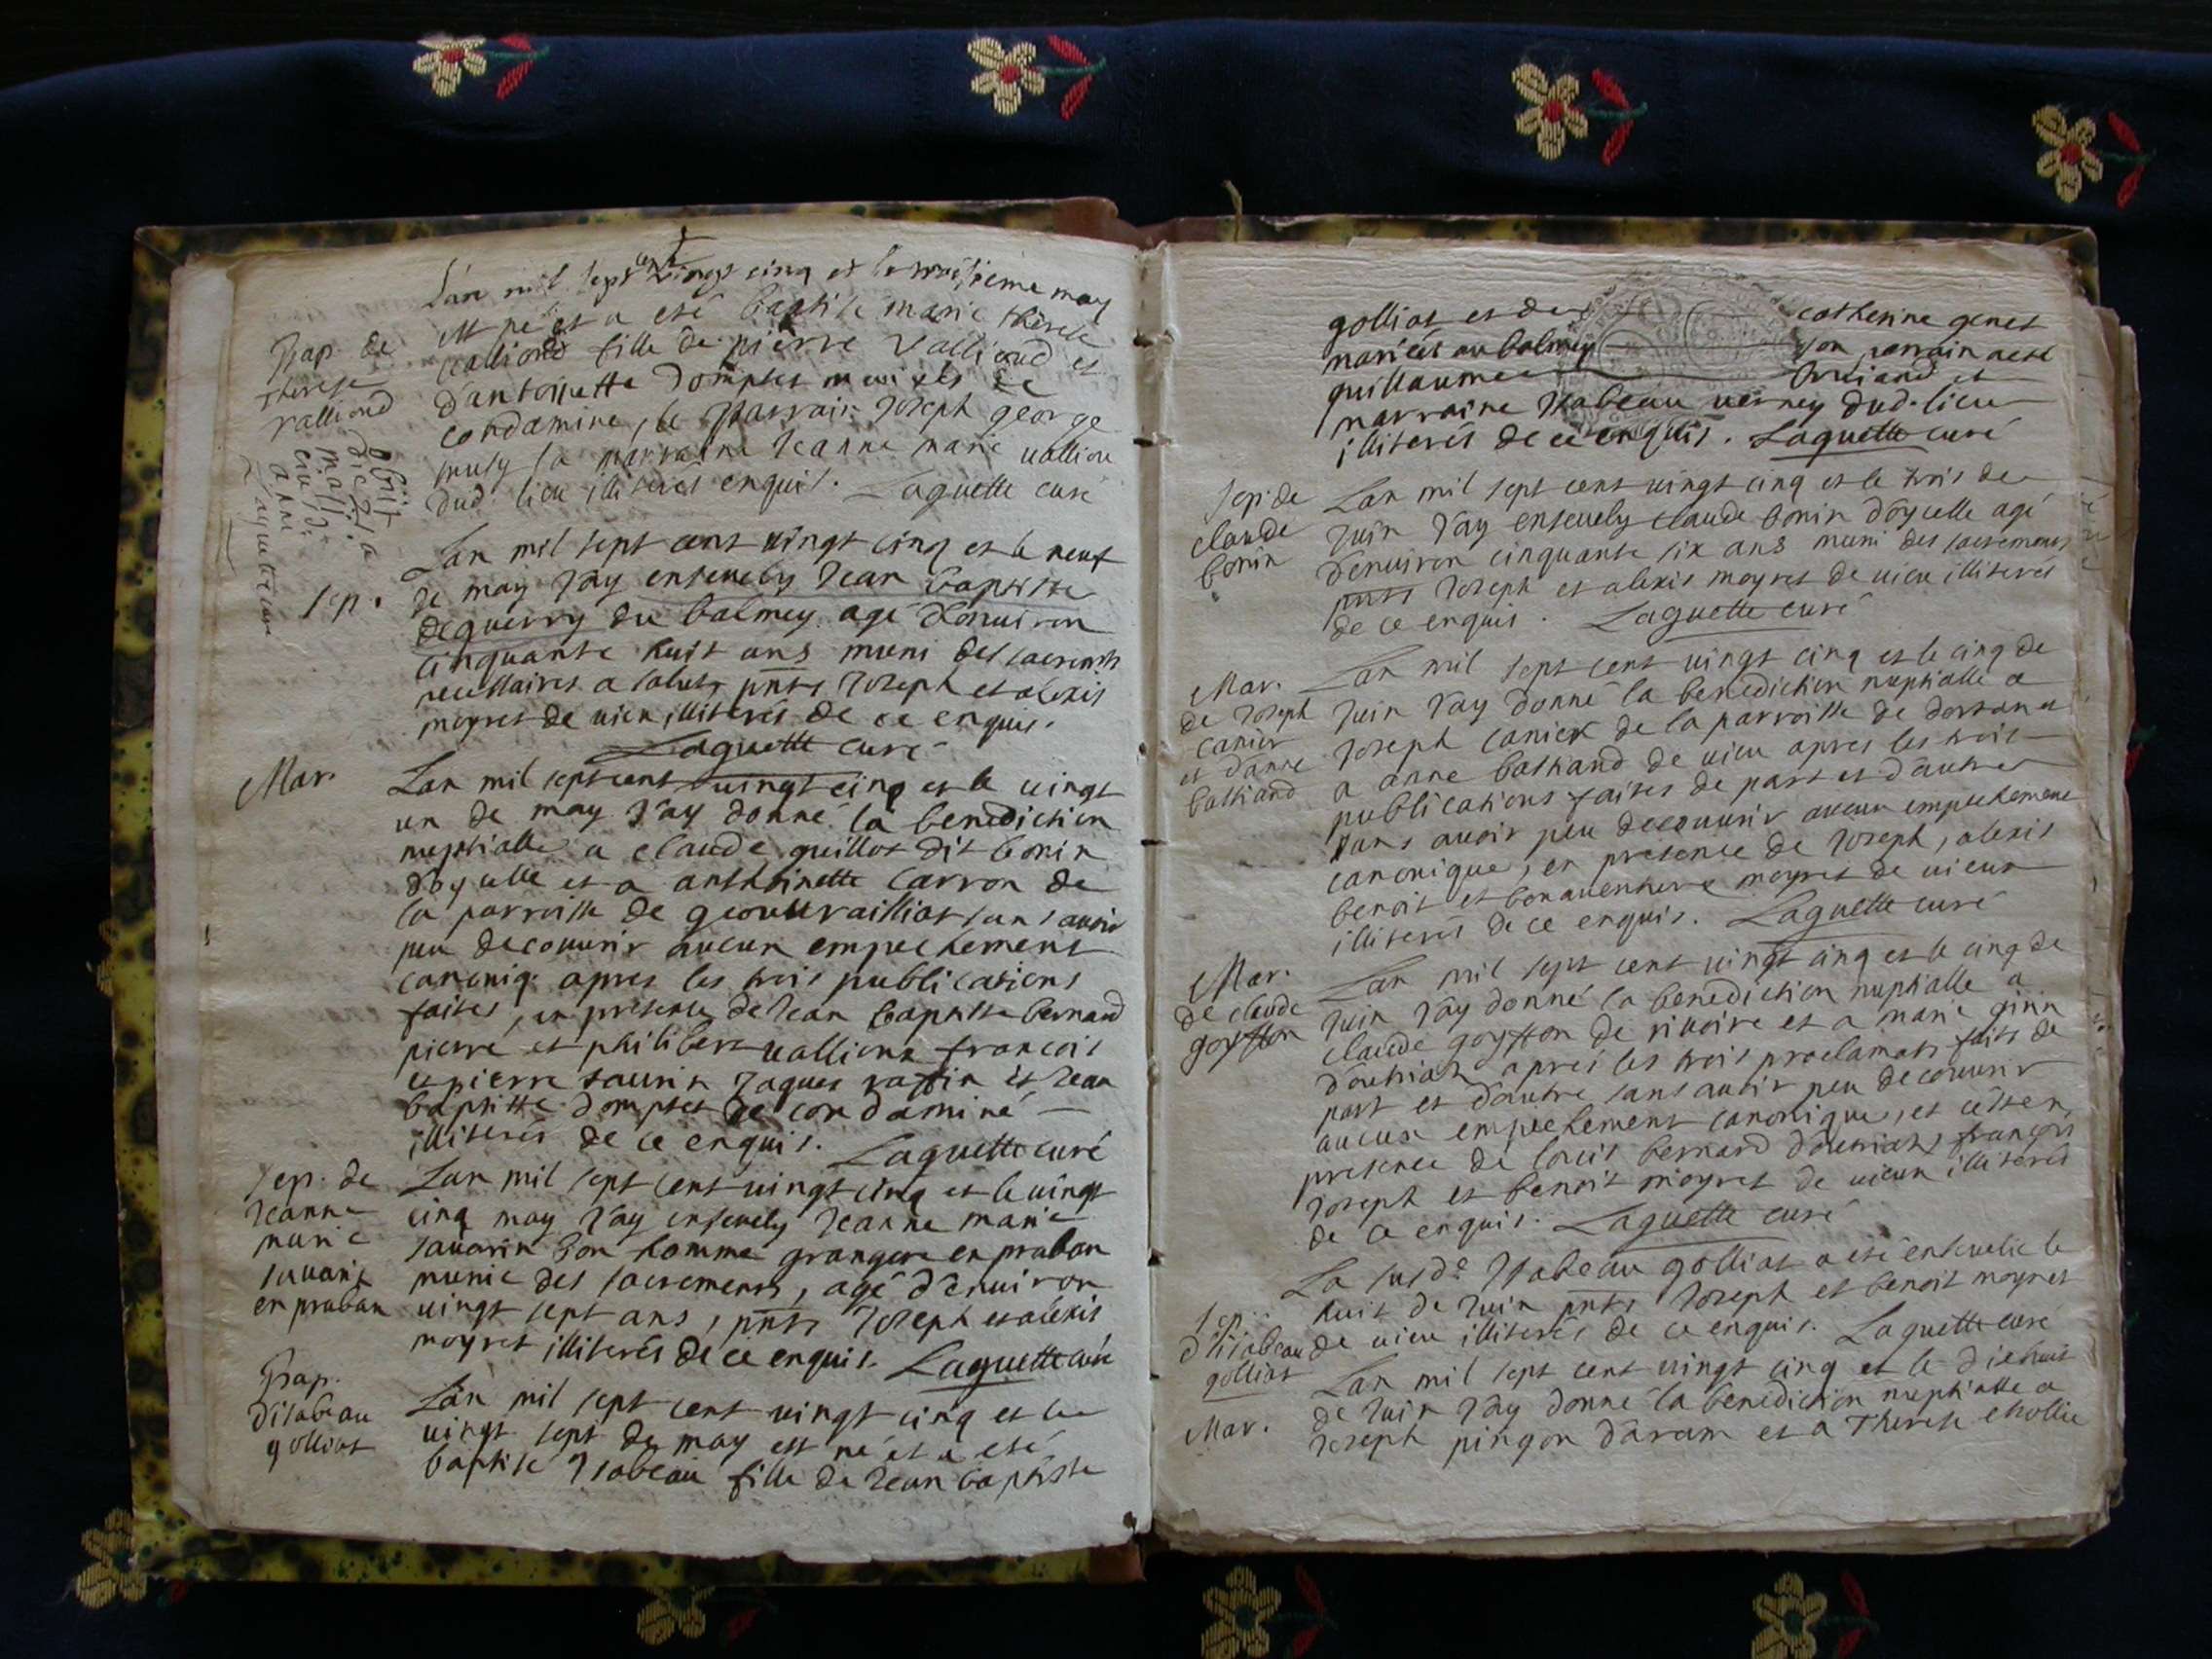 Lan mil sept cent vingt cinq et le troisième may
Bap. de
therese
vallioud
est né et a esté baptisé marie therese
vallioud fille de pierre Vallioud et
d'antoinette Domptet mariés de
condamine, le parrain Joseph george
musy la marraine Jeanne marie vallion
dud. lieu illiterés enquis. Laguette curé
obiit
die 21a
maji
eiusd.
anni
Laguette curé
Sep.
Lan mil sept cent vingt cinq et le neuf
de may J'ay ensevely Jean baptiste
deguerry du balmey agé d'enuiron
cinquante huit ans muni des sacremts
necessaires a salut, pnts Joseph et alexis
moyret de vieu illiterés de ce enquis.
Laguette curé
Mar.
Lan mil sept cent vingt cinq et le vingt
un de may J'ay donné la benediction
nuptialle a claude guillot dit bonin
d'oycelle et a anthoinette Carron de
la parroisse de geouvraillias sans avoir
peu decouurir aucun empechement
canoniq. apres les trois publications
faites, en presence de Jean baptiste bernard
pierre et philibert vallioux francois
et pierre saurin Jaques raffin et Jean
baptiste domptet de condaminé
illiterés de ce enquis. Laguette curé
Sep. de
Jeanne
marie
sauarin
en praban
Lan mil sept cent vingt cinq et le vingt
cinq may J'ay ensevely Jeanne marie
sauarin bon homme grangere en prabon
munie des sacrements, agé d'enuiron
vingt sept ans, pnts Joseph et alexis
moyret illiterés de ce enquis. Laguette curé
Bap.
d'isabeau
golliat
Lan mil sept cent vingt cinq et le
vingt sept de may est né et a esté
baptisé Isabeau fille de Jean baptiste
golliat et de catherine genet
mariés au balmey son parrain a esté
guillaume bruiand et
marraine Isabeau verney dud. lieu
illiterés de ce enquis. Laguette curé
Sep. de
claude
bonin
Lan mil sept cent vingt cinq et le trois de
Juin J'ay ensevely claude bonin d'oycelle agé
d'enuiron cinquante six ans muni des sacremens
pnts Joseph et alexis moyret de vieu illiterés
de ce enquis. Laguette curé
Mar.
de Joseph
canier
et d'anne
bathiand
Lan mil sept cent vingt cinq et le cinq de
Juin J'ay donné la benediction nuptialle a
Joseph canier de la parroisse de dortan et
a anne bathand de vieu apres les trois
publications faites de part et d'autre
sans avoir peu decouurir aucun empechement
canonique, en presence de Joseph, alexis
benoit et bonauenture moyret de vieux
illiterés de ce enquis. Laguette curé
Mar.
de claude
goyffon
Lan mil sept cent vingt cinq et le cinq de
Juin J'ay donné la benediction nuptialle a
claude goyffon de riuoire et a marie ginn
d'outriat apres les trois proclamats faits de
part et d'autre sans avoir peu decouurir
aucun empechement canonique, et cesten
presence de louis bernard d'outriat, françois
Joseph et benoit moyret de vieux illiterés
de ce enquis. Laguette curé
Sep.
d'isabeau
golliat
La susde Isabeau golliat a esté enseuelie le
huit de Juin pnts Joseph et benoit moyret
de vieu illiterés de ce enquis. Laguette curé
Mar.
Lan mil sept cent vingt cinq et le diehuit
de Juin J'ay donné la benediction nuptialle a
Joseph pingon d'aram et a Therese chollie